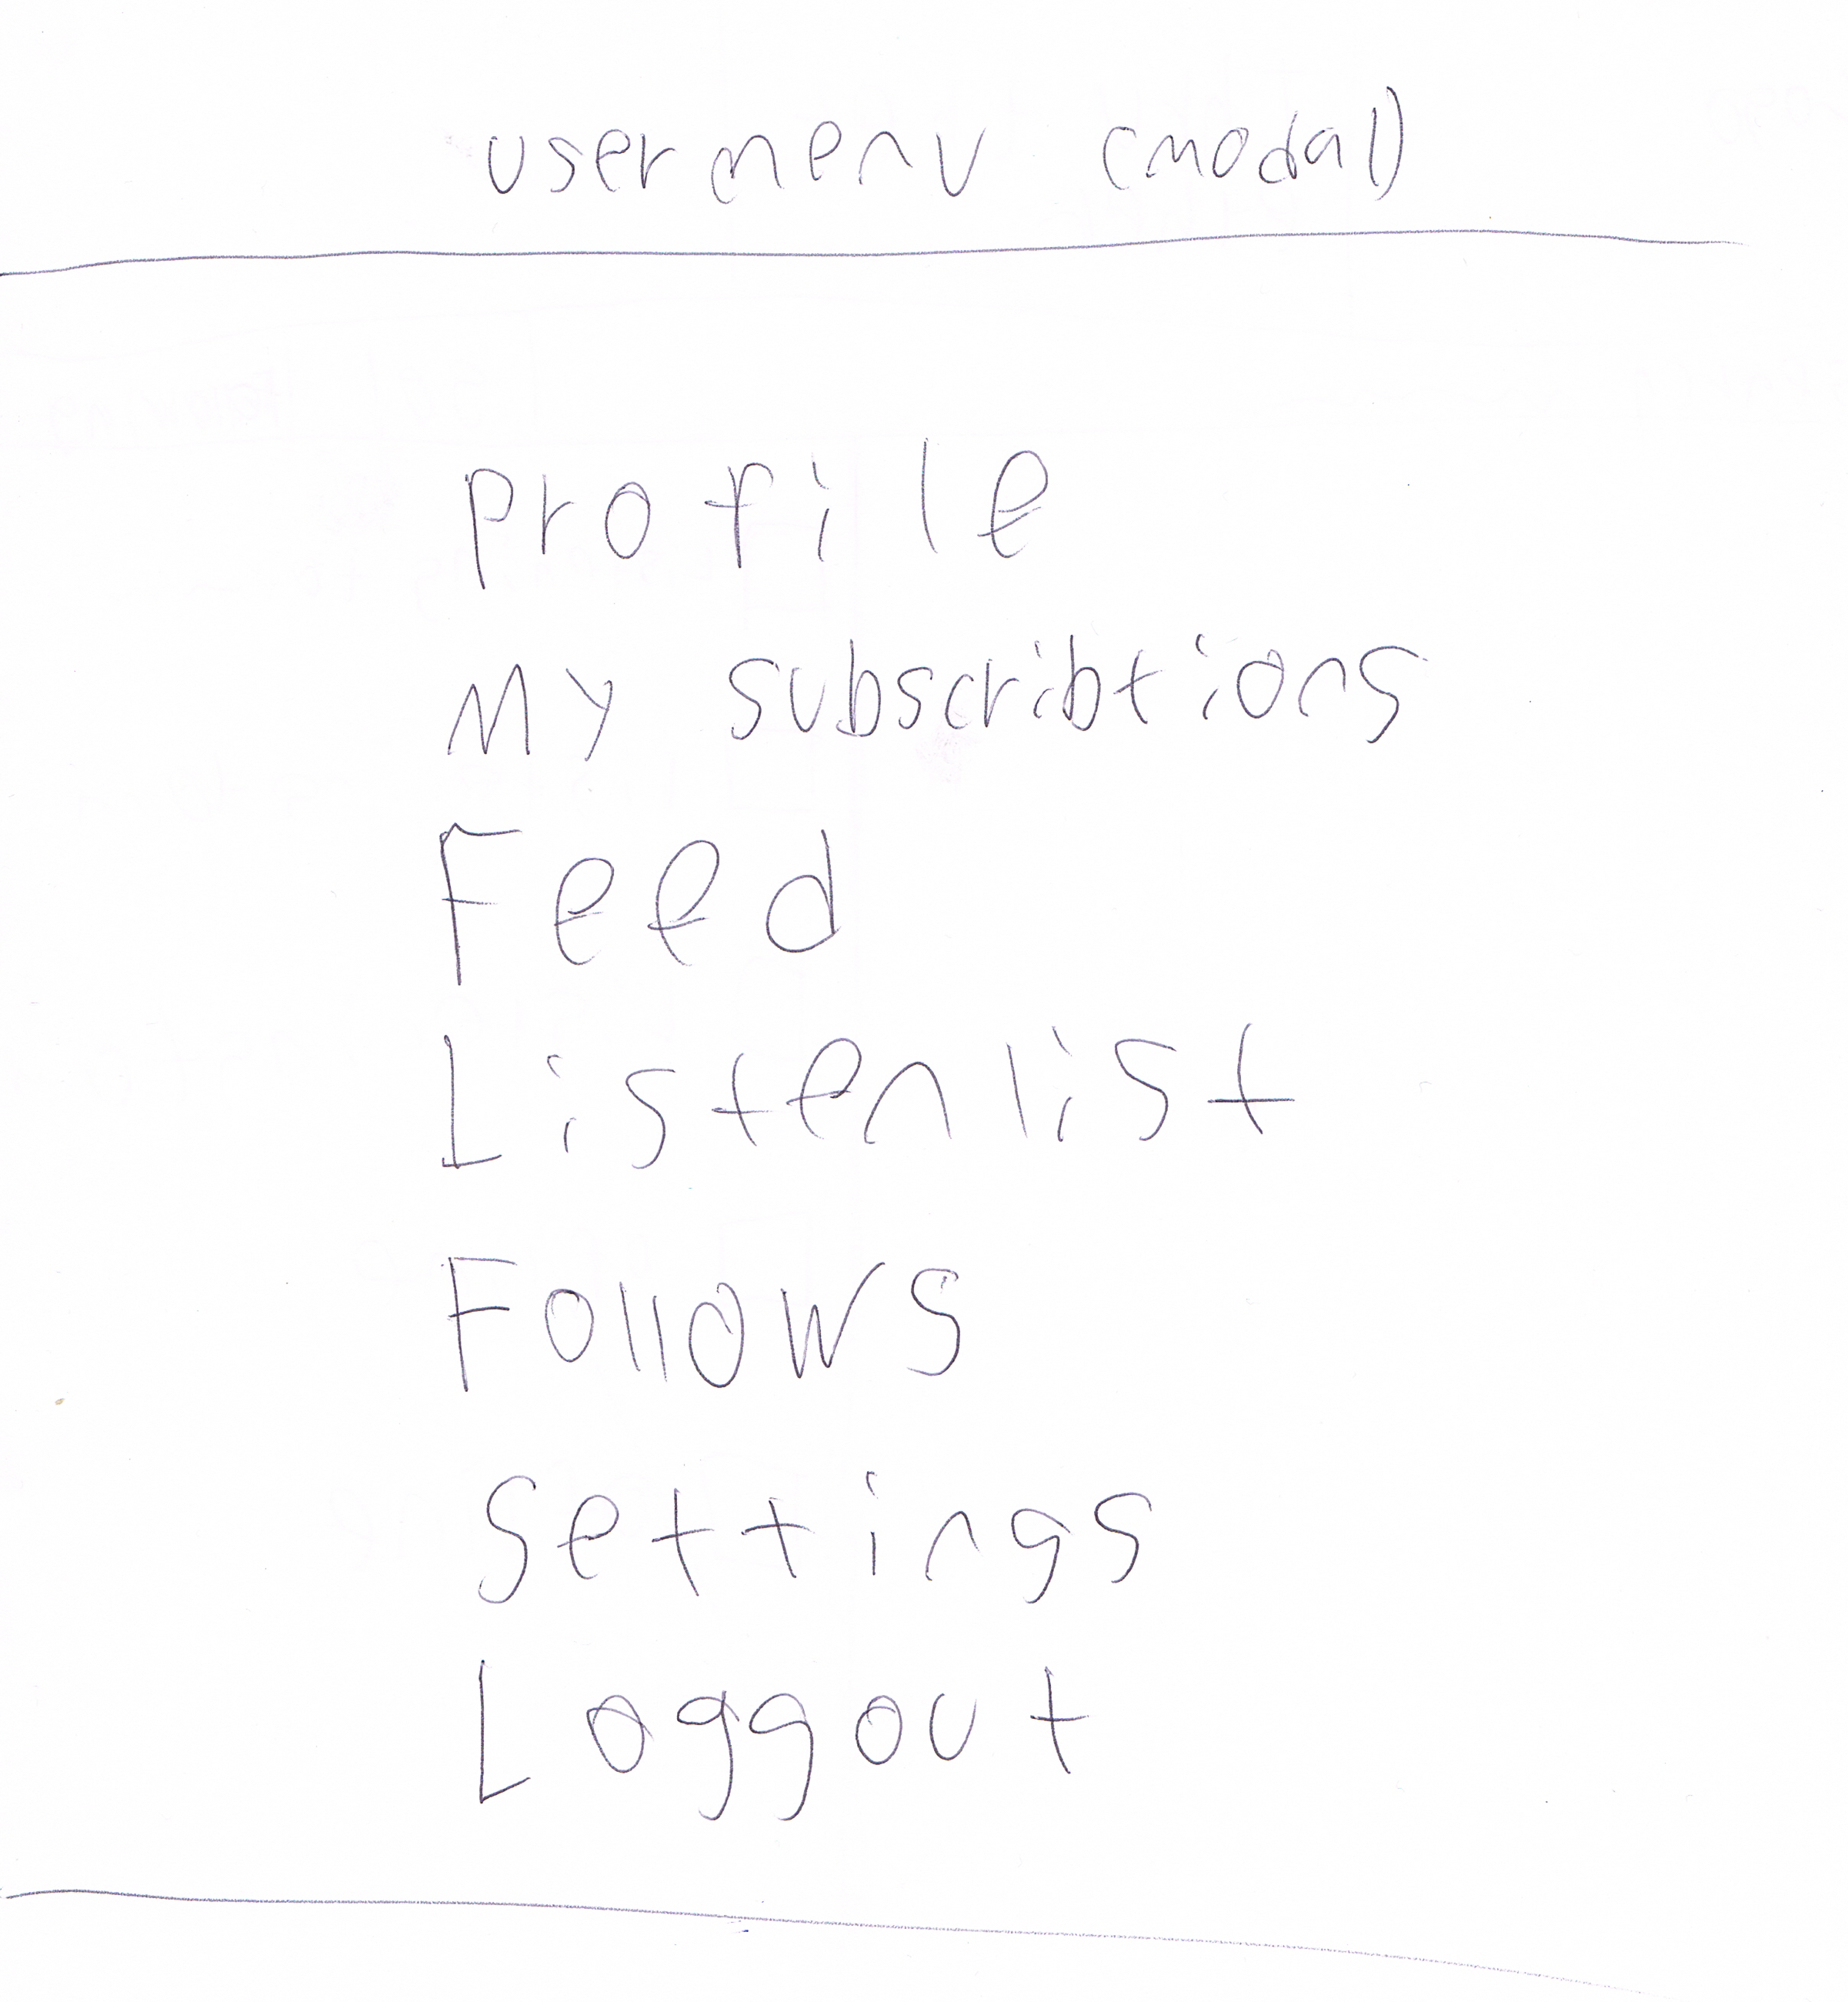 user menu (modal)
Profile
My subscribtions
Feed
Listenlist
Follows
Settings
Loggout